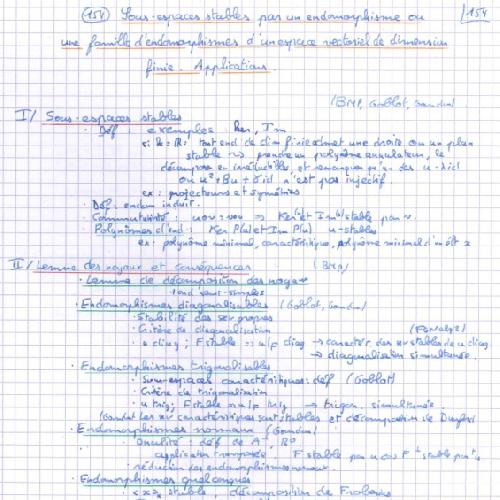 (154) Sous-espaces stables par un endomorphisme ou /154
une famille d'endomorphismes d'un espace vectoriel de dimension
finie. Applications.
(BMP, Goblot, Gourdon)
I/ Sous-espaces stables
• Déf : exemples : Ker, Im
si K = R : tout end de dim finie admet une droite ou un plan
stable ~> prendre un polynôme annulateur, le
décompose en irréductibles, et remarquer qu'un des u-λid
ou u²+Bu+γid n'est pas injectif
ex : projecteurs et symétries
• Déf : endom induit.
• Commutativité : uov = vou => Ker et Im stable par
• Polynômes d'end : Ker P(u) et Im P(u) u-stables
ex : polynôme minimal, caractéristique, polynôme minimal d'un élt x
II/ Lemme des noyaux et conséquences (BMP)
• Lemme de décomposition des noyaux
end semi-simples
• Endomorphismes diagonalisables (Goblot, Gourdon)
• Stabilité des sev propres
• Critère de diagonalisation
• u diag ; F stable => u/F diag → caractér des sev stables de u diag
→ diagonalisation simultanée.
• Endomorphismes trigonalisables
• Sous-espaces caractéristiques : déf (Goblot)
• Critère de trigonalisation
• u trig ; F stable => u/F trig → trigon. simultanée
les sev caractéristiques sont stables et décomposition de Dunford
• Endomorphismes normaux (Gourdon)
• Dualité : déf de A
application transposée F stable par u F⊥ stable par
• réduction des endomorphismes normaux.
• Endomorphismes quelconques
stable, décomposition de Frobenius